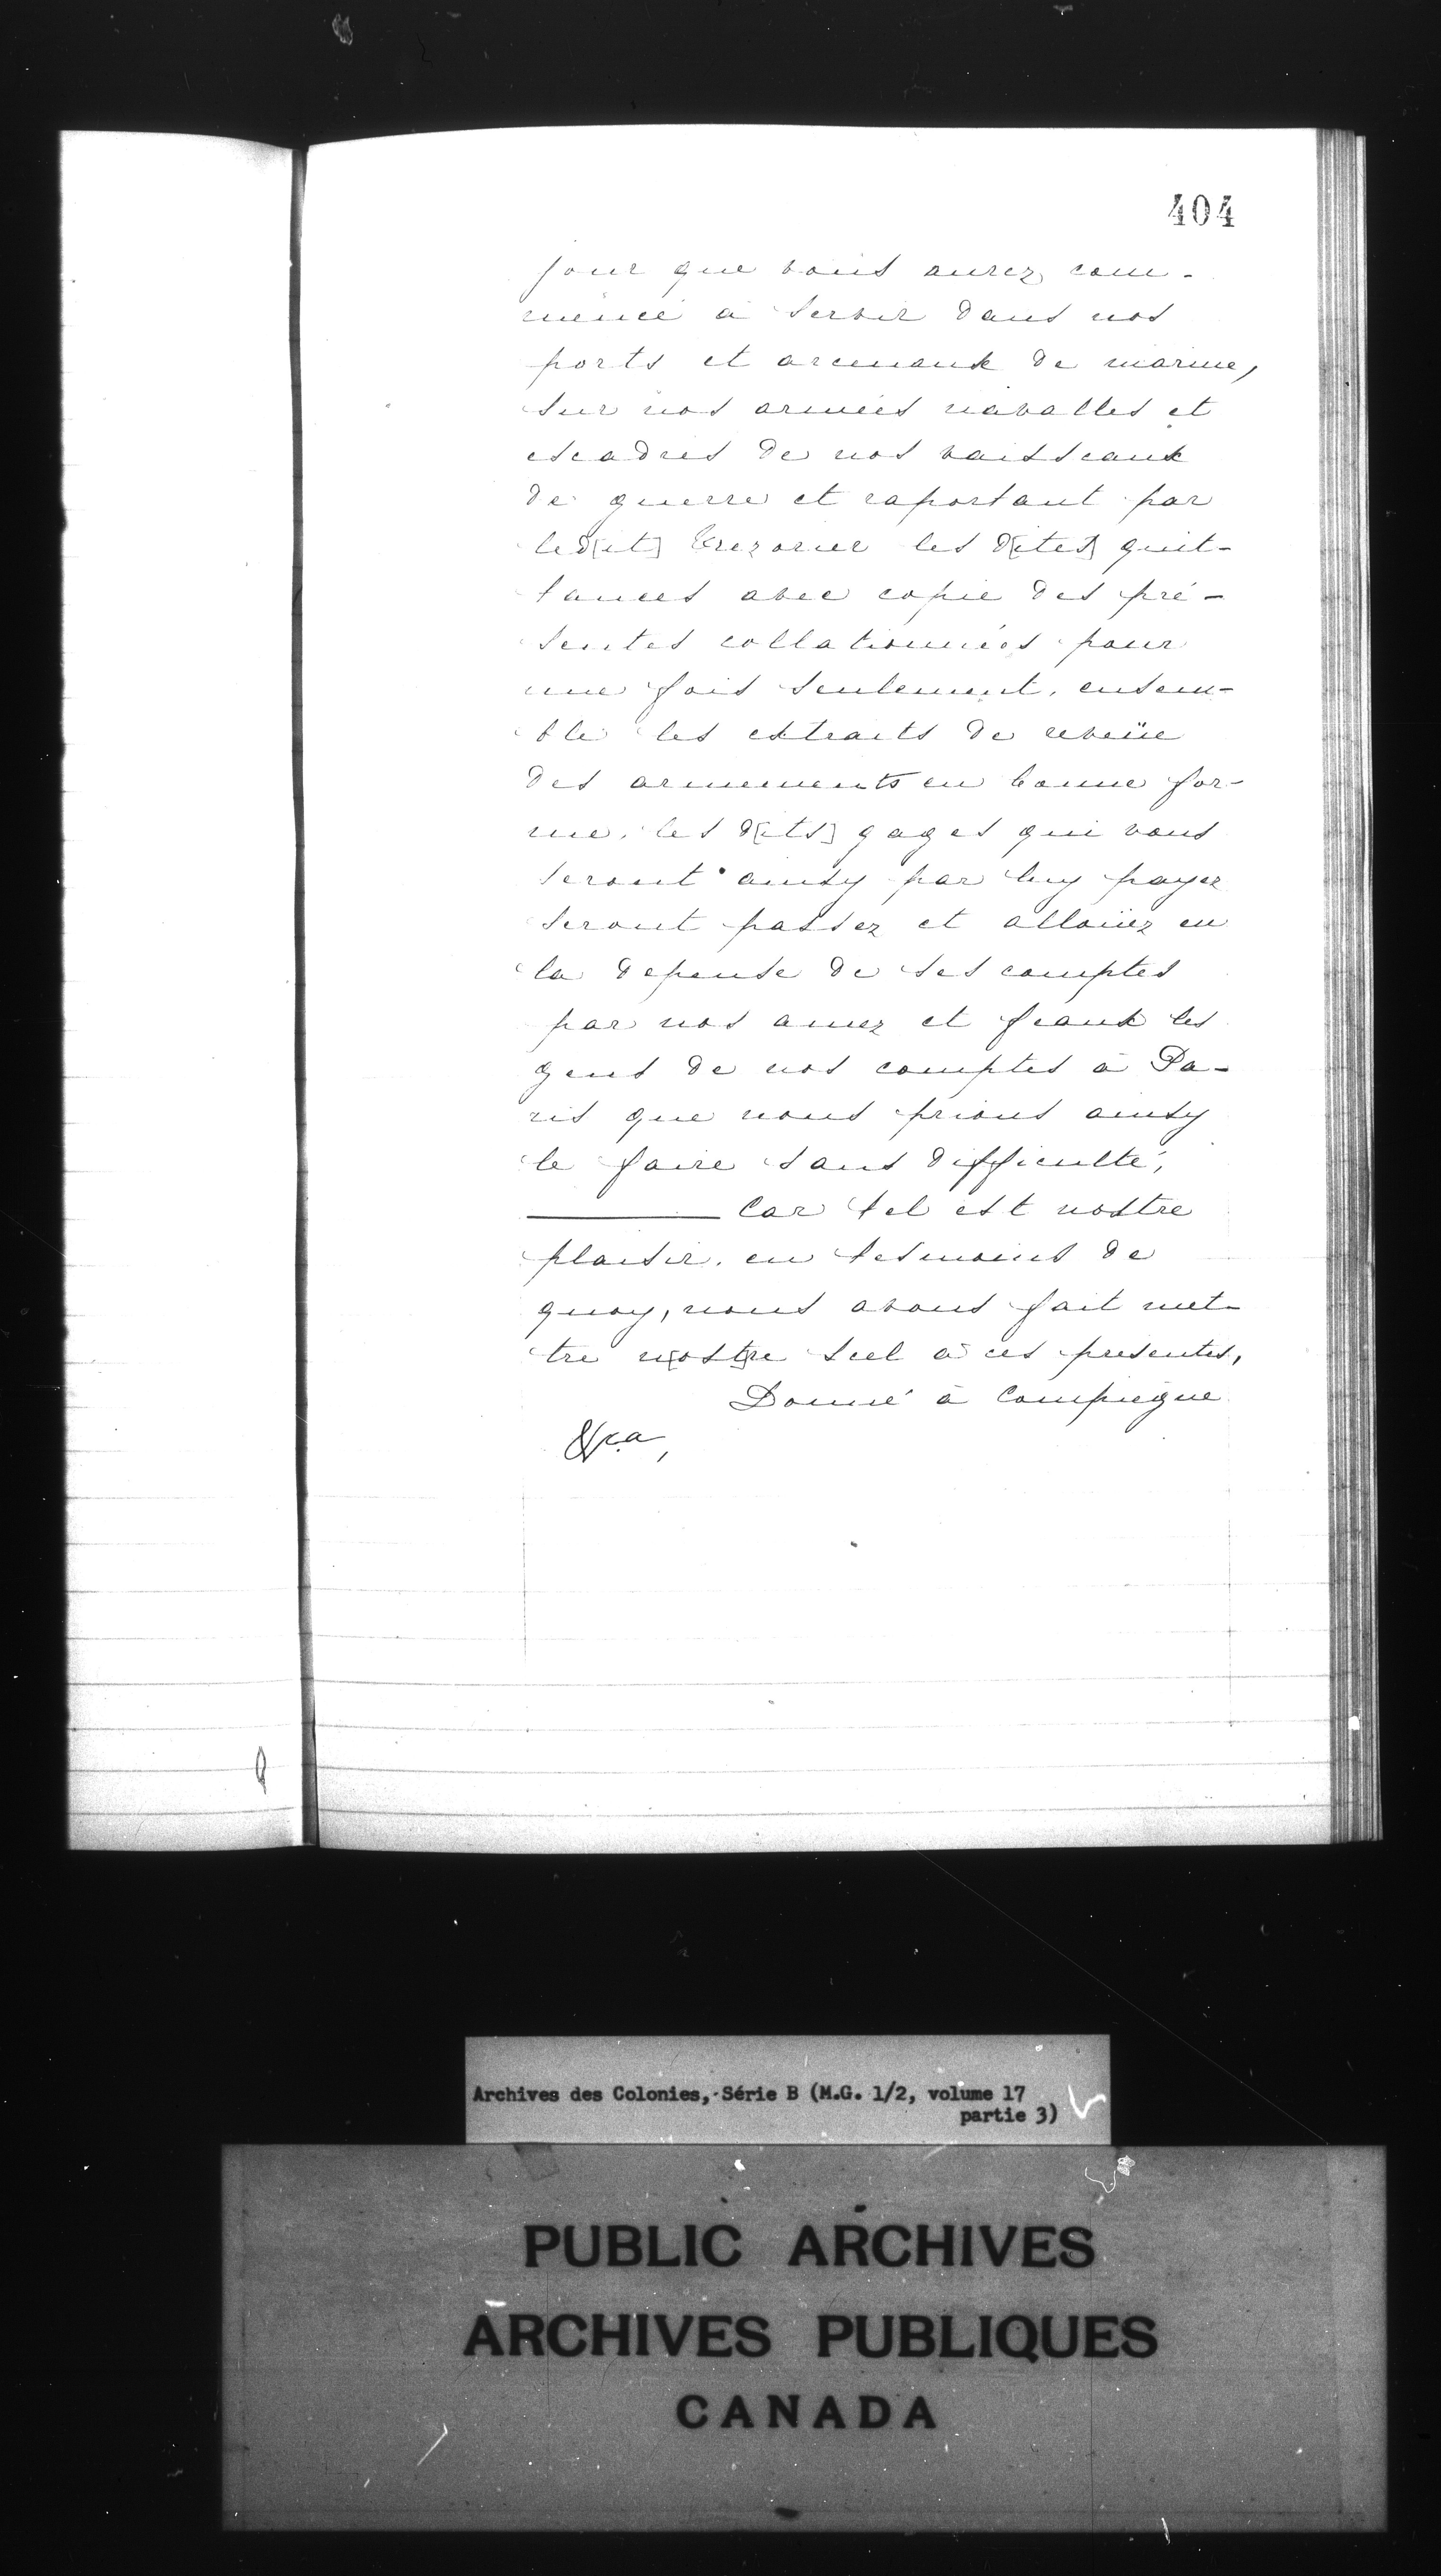 404
jour que vous aurez com-
mencé à servir dans nos
ports et arcenaux de marine,
sur nos armées navalles et
escadres de nos vaisseaux
de guerre et raportant par
led[it] Trezorier les d[ites] quit-
tances avec copie des pré-
sentes collationnées pour
une fois seulement, ensem-
ble les extraits de reveüe
des armements en bonne for-
me, les d[its] gages qui vous
seront ainsy par luy payez
seront passez et alloüez en
la depense de ses comptes
par nos amez et feaux les
gens de nos comptes à Pa-
ris que nous prions ainsy
le faire sans difficulté,
Car tel est nostre
plaisir, en tesmoins de
quoy, nous avons fait met-
tre n[ost]re scel à ces presentes,
Donné à Compiegne
&ca,
Archives des Colonies, Série B (M.G. 1/2, volume 17
partie 3)
PUBLIC ARCHIVES
ARCHIVES PUBLIQUES
CANADA